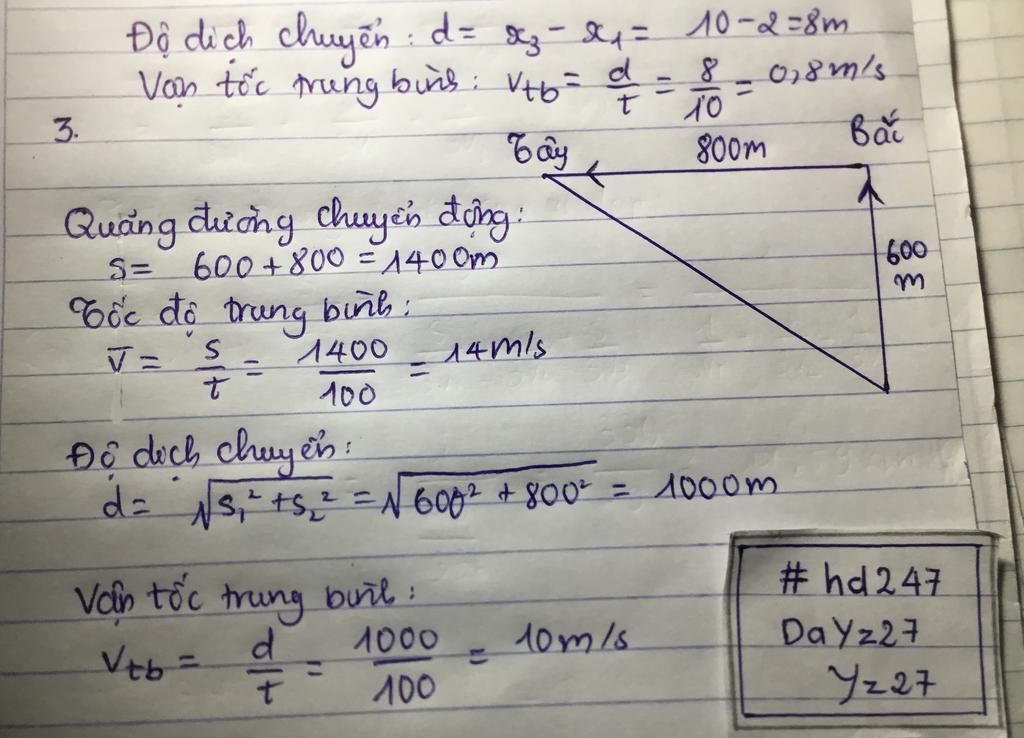 Độ dịch chuyển: d = x₃ - x₁ = 10 - 2 = 8m
Vận tốc trung bình: Vtb = d/t = 8/10 = 0,8 m/s
3.
Tây 800m Bắc
600 m
Quãng đường chuyển động:
S = 600 + 800 = 1400m
Tốc độ trung bình:
v̅ = s/t = 1400/100 = 14 m/s
Độ dịch chuyển:
d = √(S₁² + S₂²) = √(600² + 800²) = 1000m
Vận tốc trung bình:
Vtb = d/t = 1000/100 = 10 m/s
# hd247
DaYz27
Yz27